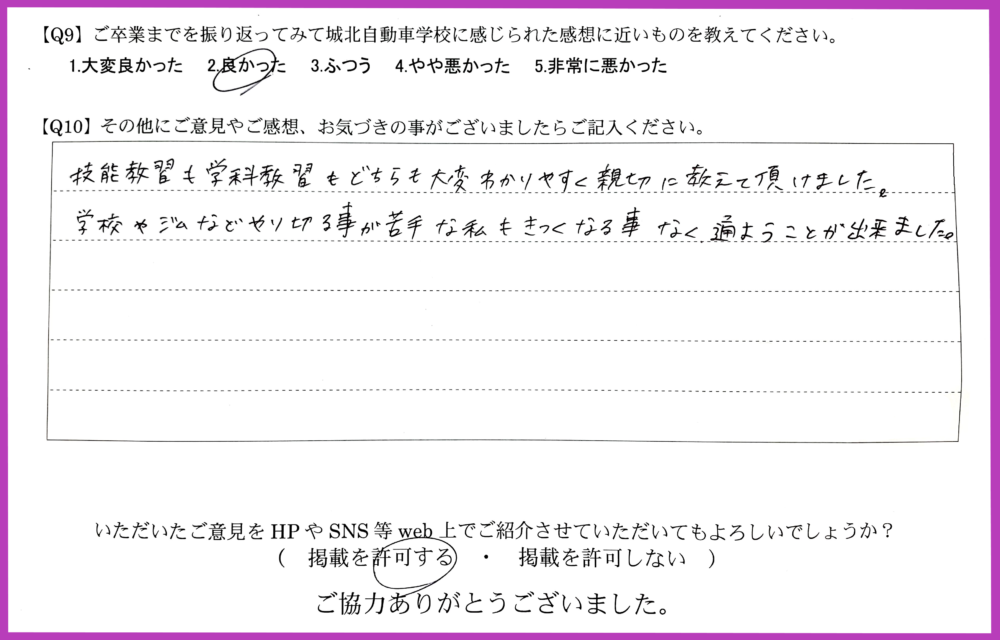 【Q9】ご卒業までを振り返ってみて城北自動車学校に感じられた感想に近いものを教えてください。
1.大変良かった 2.良かった 3.ふつう 4.やや悪かった 5.非常に悪かった
【Q10】その他にご意見やご感想、お気づきの事がございましたらご記入ください。
技能教習も学科教習もどちらも大変わかりやすく親切に教えて頂けました。
学校やジムなどやり切る事が苦手な私もきつくなる事なく通ようことが出来ました。
いただいたご意見をHPやSNS等web上でご紹介させていただいてもよろしいでしょうか？
( 掲載を許可する ・ 掲載を許可しない )
ご協力ありがとうございました。